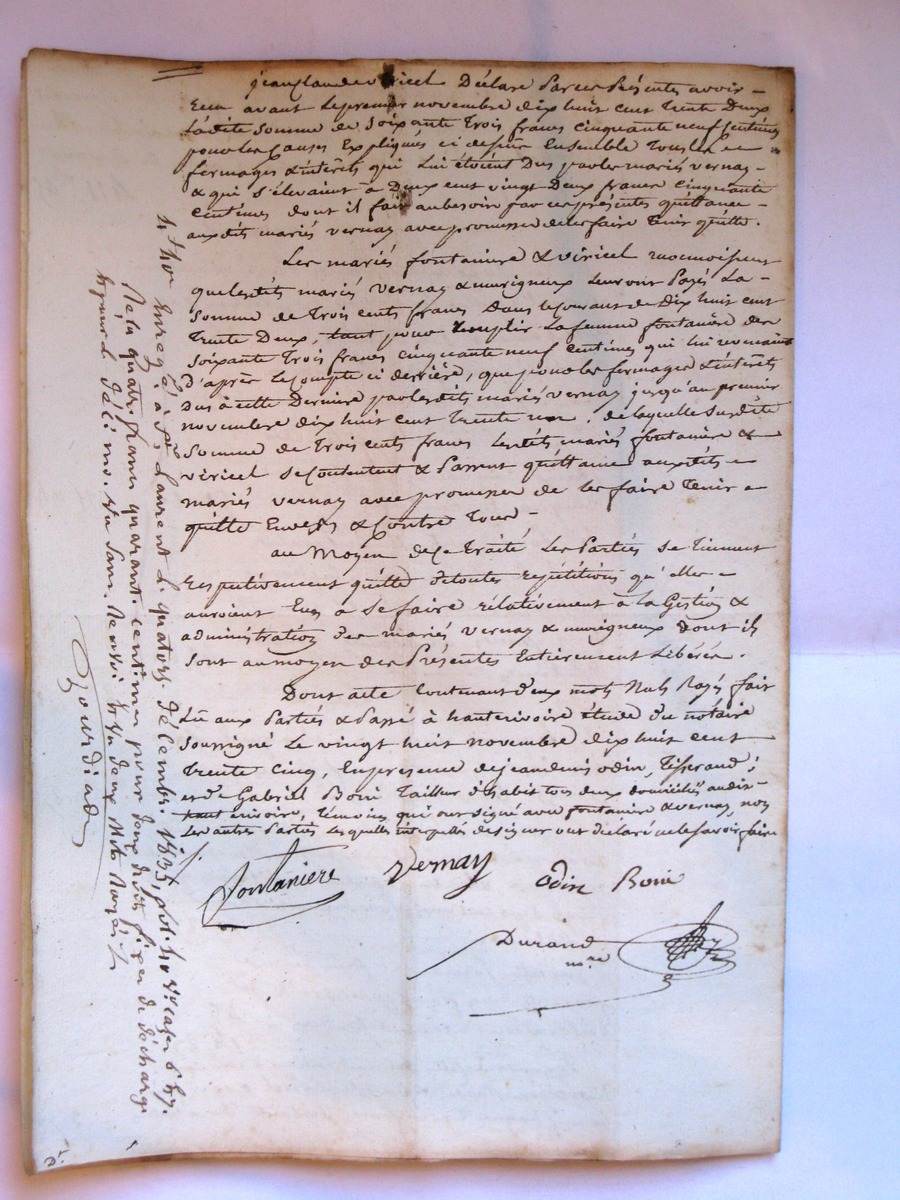 jean Claude viricel Déclare Par ces Présentes avoir
Reçu avant Le premier novembre dix huit cent Trente Deux
Ladite somme de soixante Trois francs cinquante neuf centimes
pour les Causes Expliquées ci dessus Ensemble Tous les
fermages & intérêts qui Lui étoient Dus par les mariés vernay
& qui s'élevaient à Deux cent vingt Deux francs cinquante
centimes dont il fait au besoin par ces présentes quittance
aux dits mariés vernay avec promesse de les faire Tenir quitte.
Les mariés fontaniere & viricel reconnoissent
que lesdits mariés vernay & murigneux Leur ont Payés La
somme de Trois cents francs Dans le courant de Dix huit cent
Trente Deux, tant pour Remplir La femme fontanière des
soixante Trois francs cinquante neuf centimes qui lui revenaient
d'après le compte ci derrière, que pour les fermages & intérêts
Dus à cette Dernière par lesdits mariés vernay jusqu'au premier
novembre dix huit cent Trente un. de laquelle susdite
somme de Trois cents francs lesdits mariés fontaniere &
viricel se Contentent & Passent quittance auxdits
mariés vernay avec promesse de les faire Tenir
quitte Envers & Contre Tous
au Moyen de ce Traité Les Parties se Tiennent
Respectivement quitte de toutes répétitions qu'elles
auroient Eues a se faire rélativement à La Gestion &
administration des mariés vernay & murigneux dont ils
sont au moyen des Présentes Entierement Libérés.
Dont acte Contenant deux mots Nuls Rayés fait
Lu aux Parties & Passé à hauterivoire étude du notaire
soussigné Le vingt huit novembre dix huit cent
trente cinq, En présence de jean denis odin, Tisserand;
et de Gabriel Boni Tailleur d'habits tous deux domiciliés audit
haut erivoire, témoins, qui ont signé avec fontaniere & vernay, non
Les autres Parties Lesquelles interpellés de signer ont déclaré ne le savoir faire
Fontaniere Vernay odin Boni
Durand
nre
Enregé à St Laurent le quatorze décembre 1835, fol.
Reçu quatre francs quarante centimes pour